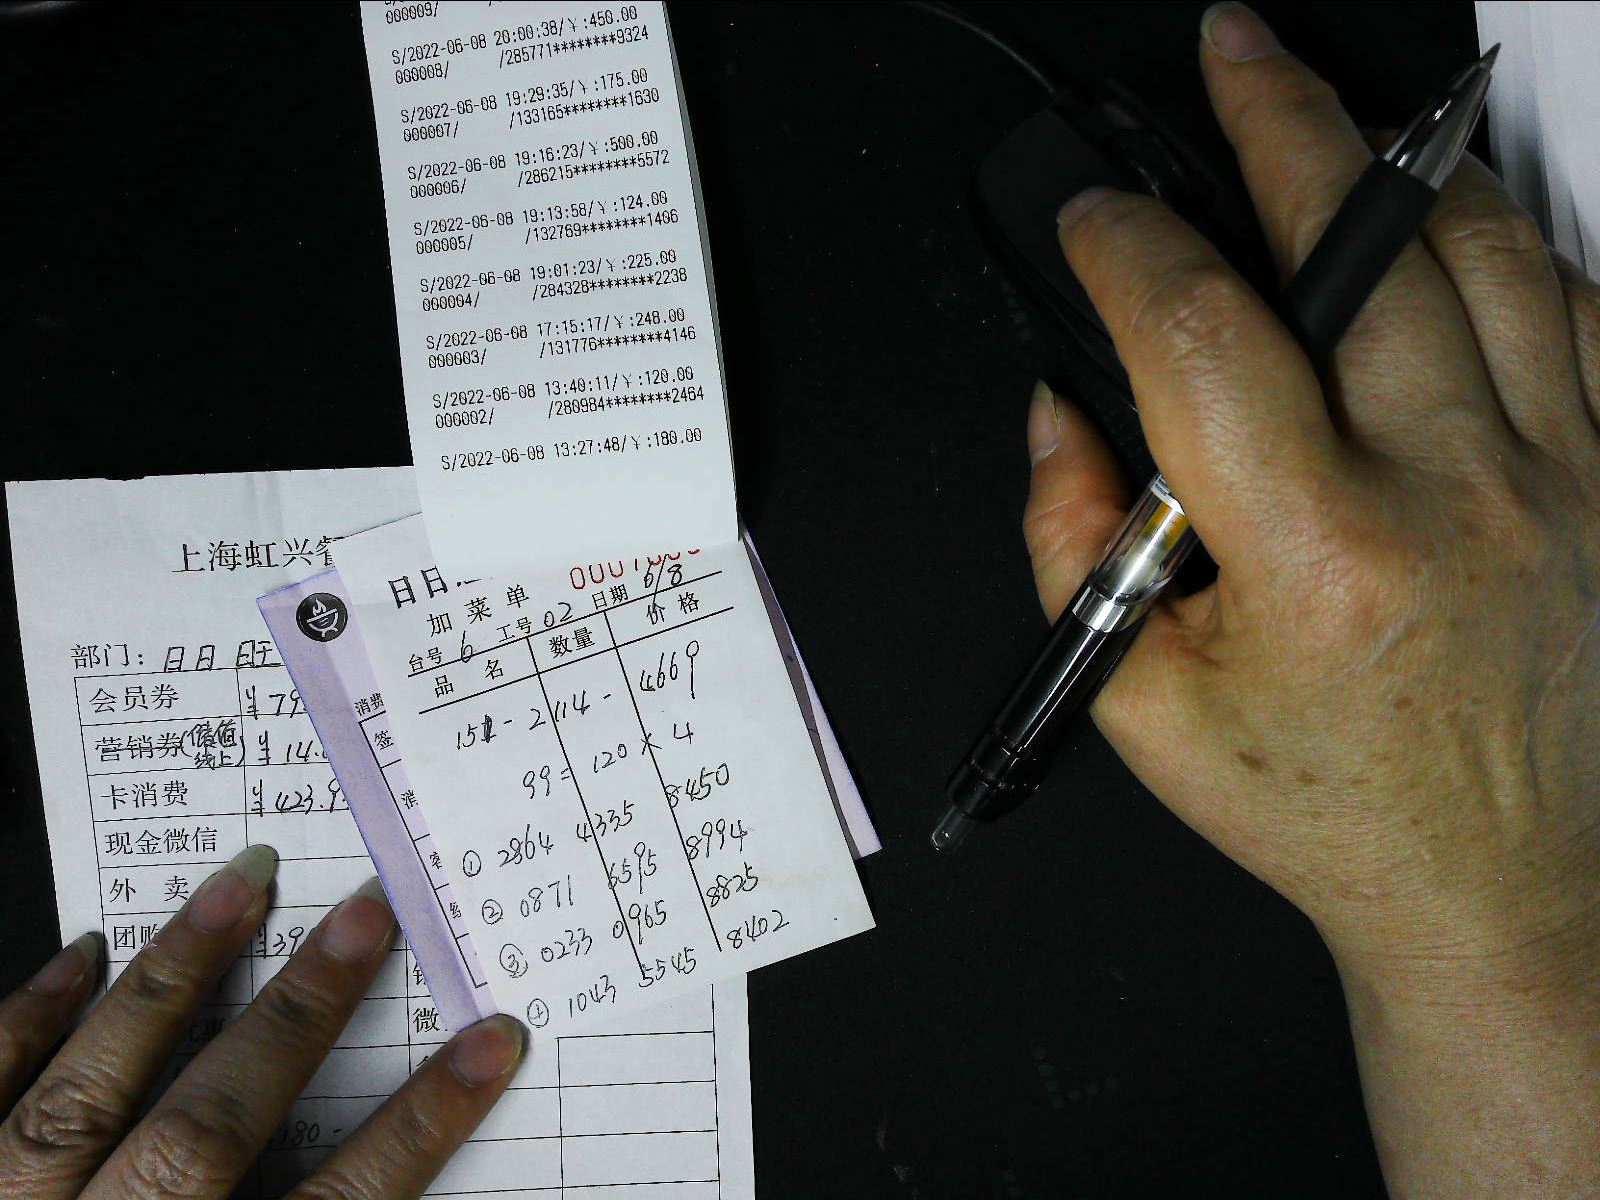 000009/
S/2022-06-08 20:00:38/￥:450.00
000008/ /285771********9324
S/2022-06-08 19:29:35/￥:175.00
000007/ /133165********1630
S/2022-06-08 19:16:23/￥:500.00
000006/ /286215********5572
S/2022-06-08 19:13:58/￥:124.00
000005/ /132769********1406
S/2022-06-08 19:01:23/￥:225.00
000004/ /284328********2238
S/2022-06-08 17:15:17/￥:248.00
000003/ /131776********4146
S/2022-06-08 13:40:11/￥:120.00
000002/ /280984********2464
S/2022-06-08 13:27:48/￥:180.00
上海虹兴餐
部门: 日日
会员券 ¥79
营销券(储值线上) ¥14.
卡消费 ¥423.9
现金微信
外 卖
团购 ¥39
微
消费
签
日日
加菜单
台号 6 工号 02 日期 6/8
品 名 数量 价 格
151-2114-4669
99=120×4
① 2864 4335 8450
② 0871 6595 8994
③ 0233 0965 8825
④ 1043 5545 8402